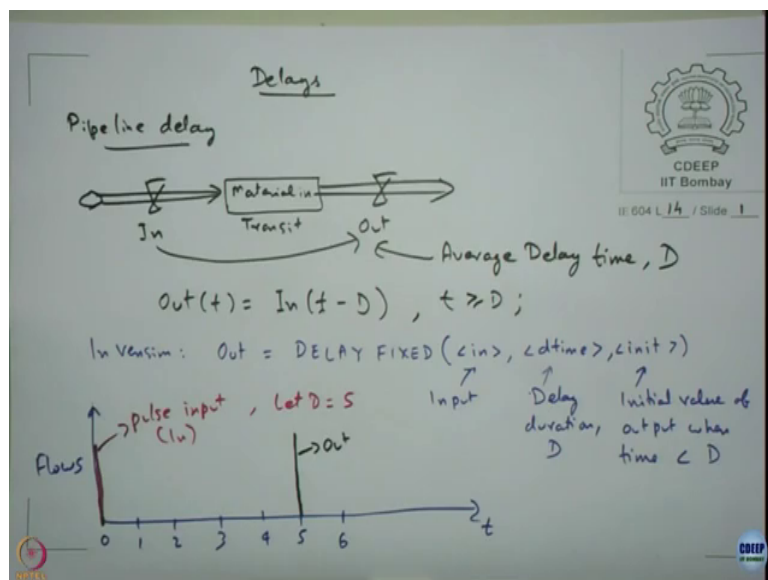 Delays
CDEEP
IIT Bombay
IE 604 L 14 / Slide 1
Pipeline delay
Material in
Transit
In
Out
Average Delay time, D
Out(t) = In(t - D) , t ≥ D ;
In Vensim: Out = DELAY FIXED (<in>, <dtime>, <init>)
Input
Delay
duration,
D
Initial value of
output when
time < D
pulse input , Let D = 5
(In)
Out
Flows
0 1 2 3 4 5 6
t
NPTEL
CDEEP
IIT BOMBAY